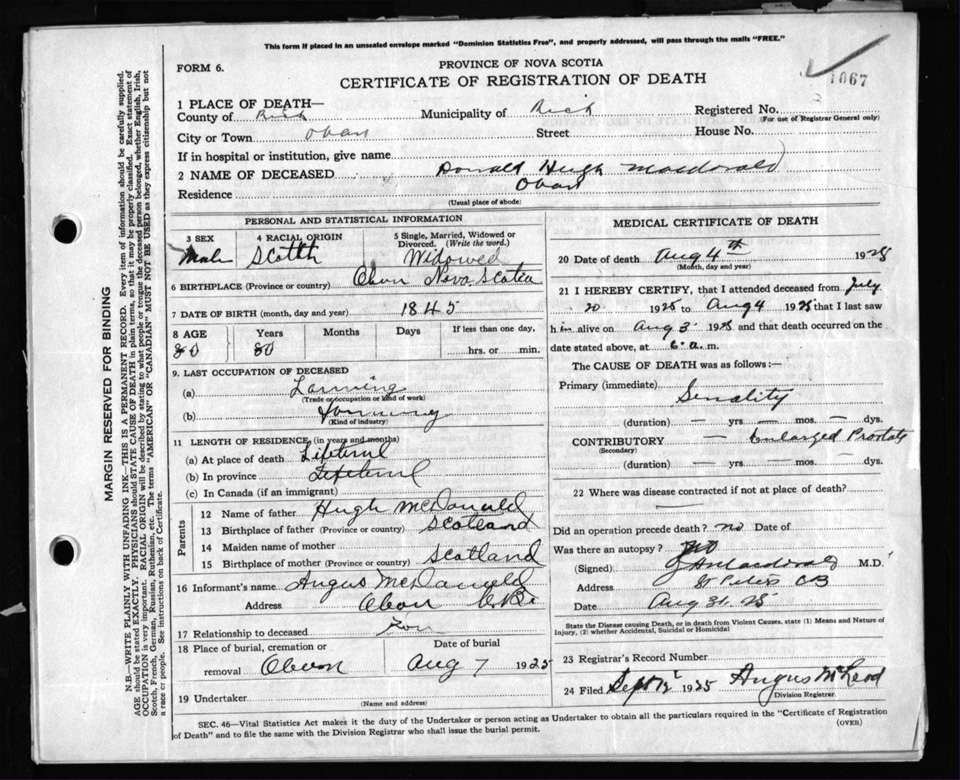 This form if placed in an unsealed envelope marked "Dominion Statistics Free", and properly addressed, will pass through the mails "FREE."
FORM 6.
PROVINCE OF NOVA SCOTIA
CERTIFICATE OF REGISTRATION OF DEATH
1067
1 PLACE OF DEATH—
County of Rich Municipality of Rich Registered No.
(For use of Registrar General only)
City or Town Oban Street House No.
If in hospital or institution, give name
2 NAME OF DECEASED Donald Hugh Macdonald
Residence Oban
(Usual place of abode)
PERSONAL AND STATISTICAL INFORMATION
3 SEX 4 RACIAL ORIGIN 5 Single, Married, Widowed or Divorced. (Write the word.)
Male Scotth Widowed
6 BIRTHPLACE (Province or country) Oban Nova Scotia
7 DATE OF BIRTH (month, day and year) 1845
8 AGE Years Months Days If less than one day,
80 80 hrs. or min.
9. LAST OCCUPATION OF DECEASED
(a) Farming
(Trade or occupation or kind of work)
(b) Farming
(Kind of industry)
11 LENGTH OF RESIDENCE (in years and months)
(a) At place of death
(b) In province
(c) In Canada (if an immigrant)
Parents
12 Name of father Hugh McDonald
13 Birthplace of father (Province or country) Scotland
14 Maiden name of mother
15 Birthplace of mother (Province or country) Scotland
16 Informant's name Angus McDonald
Address Oban C.B.
17 Relationship to deceased Son
18 Place of burial, cremation or removal Date of burial
Oban Aug 7 1925
19 Undertaker
(Name and address)
MEDICAL CERTIFICATE OF DEATH
20 Date of death Aug 4th 1925
(Month, day and year)
21 I HEREBY CERTIFY, that I attended deceased from July
20 1925 to Aug 4 1925 that I last saw
h im alive on Aug 3 1925 and that death occurred on the
date stated above, at 6 a.m.
The CAUSE OF DEATH was as follows:—
Primary (immediate) Senality
(duration) — yrs. — mos. — dys.
CONTRIBUTORY — Enlarged Prostate
(Secondary)
(duration) — yrs. — mos. — dys.
22 Where was disease contracted if not at place of death?
Did an operation precede death? no Date of
Was there an autopsy? no
(Signed) M.D.
Address St Peters CB
Date Aug 31. 25
State the Disease causing Death, or in death from Violent Causes, state (1) Means and Nature of
Injury, (2) whether Accidental, Suicidal or Homicidal
23 Registrar's Record Number
24 Filed Sept 12 1925 Angus McLeod
Division Registrar.
SEC. 46—Vital Statistics Act makes it the duty of the Undertaker or person acting as Undertaker to obtain all the particulars required in the "Certificate of Registration
of Death" and to file the same with the Division Registrar who shall issue the burial permit.
(OVER)
MARGIN RESERVED FOR BINDING
N.B.—WRITE PLAINLY WITH UNFADING INK—THIS IS A PERMANENT RECORD. Every item of information should be carefully supplied.
AGE should be stated EXACTLY. PHYSICIANS should STATE CAUSE OF DEATH in plain terms, so that it may be properly classified. Exact statement of
OCCUPATION is very important. RACIAL ORIGIN will be described by stating to what people or tongue the deceased person belonged, whether English, Irish,
Scotch, French, German, Russian, Ruthenian, etc. The terms "AMERICAN" OR "CANADIAN" MUST NOT BE USED as they express citizenship but not
a race or people. See instructions on back of Certificate.